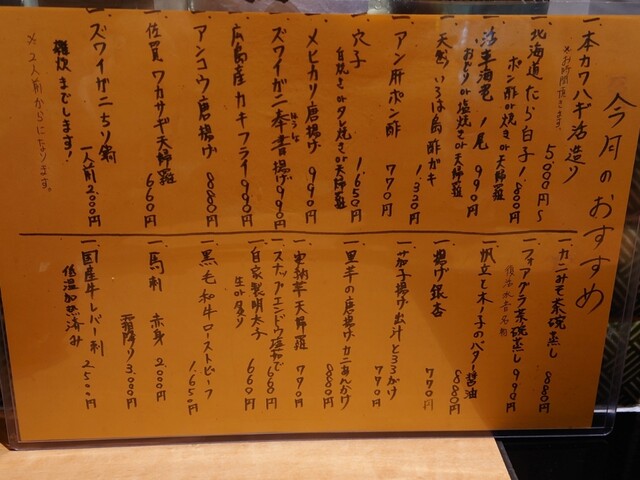 今月のおすすめ
一.本カワハギ活造り 5,000円〜
※お時間頂きます。
一.北海道たら白子 1,800円
ポン酢or焼きor天婦羅
一.活車海老 1尾 990円
おどりor塩焼きor天婦羅
一.天然いろは島酢ガキ 1,320円
一.アン肝ポン酢 770円
一.穴子 1,650円
白焼きorタレ焼きor天婦羅
一.メヒカリ唐揚げ 990円
一.ズワイガニ奉書揚げ 990円
一.広島産カキフライ 990円
一.アンコウ唐揚げ 880円
一.佐賀ワカサギ天婦羅 660円
一.ズワイガニちり鍋 1人前2,000円
雑炊までします!
※2人前からになります。
一.カニみそ茶碗蒸し 880円
一.フォアグラ茶碗蒸し 990円
一.帆立て木ノ子のバター醤油 880円
一.揚げ銀杏 770円
一.茄子揚げ出汁とろろかけ 770円
一.里芋の唐揚カニあんかけ 880円
一.安納芋天婦羅 770円
一.スナップエンドウ塩ゆで 660円
一.自家製明太子 660円
生or炙り
一.黒毛和牛ローストビーフ 1,650円
一.馬刺 赤身 2,000円
霜降り 3,000円
一.国産牛レバー刺 2,500円
低温加熱済み